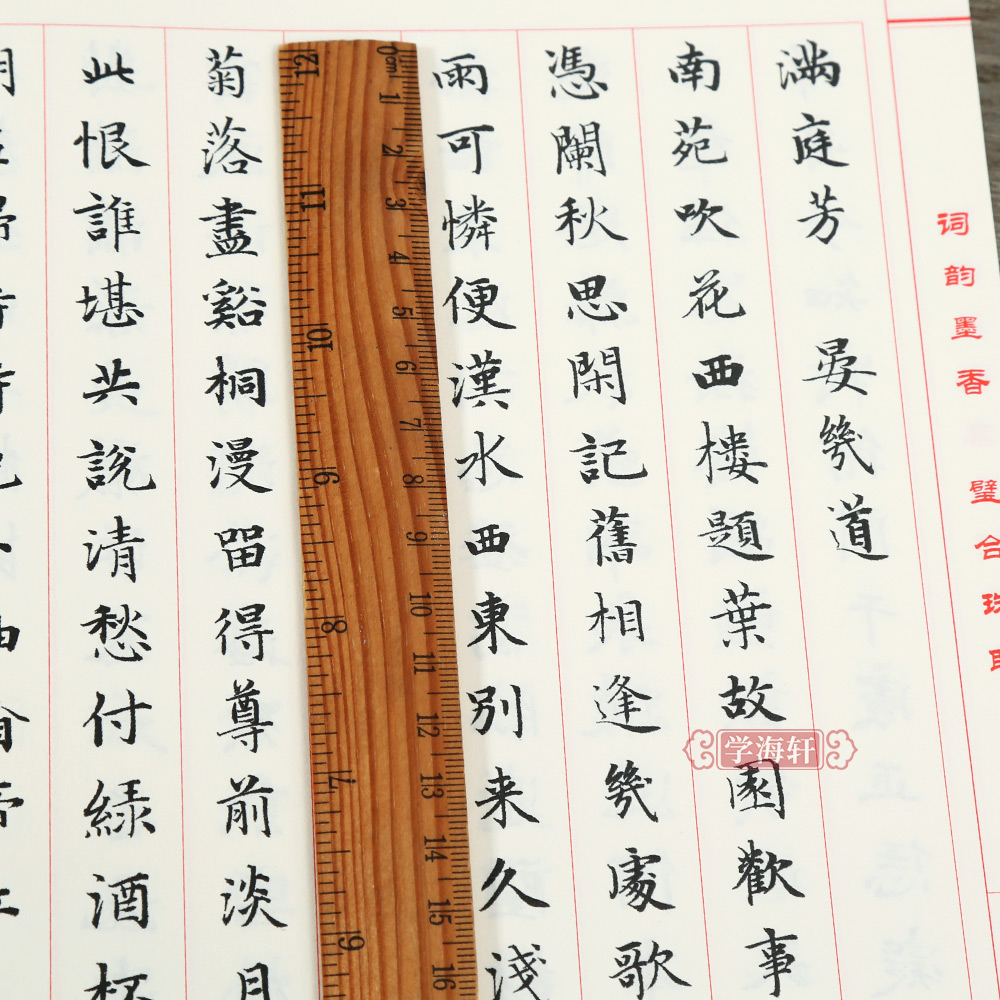 词韵墨香 璧合珠
滿庭芳 晏幾道
南苑吹花西樓題葉故園歡事
憑闌秋思閑記舊相逢幾處歌
雨可憐便漢水西東別来久淺
0cm 1 2 3 4 5 6 7 8 9 10 11 12 13 14 15 16
12 11 10 9 8 7 6
菊落盡谿桐漫留得尊前淡月
此恨誰堪共說清愁付綠酒杯
学海轩